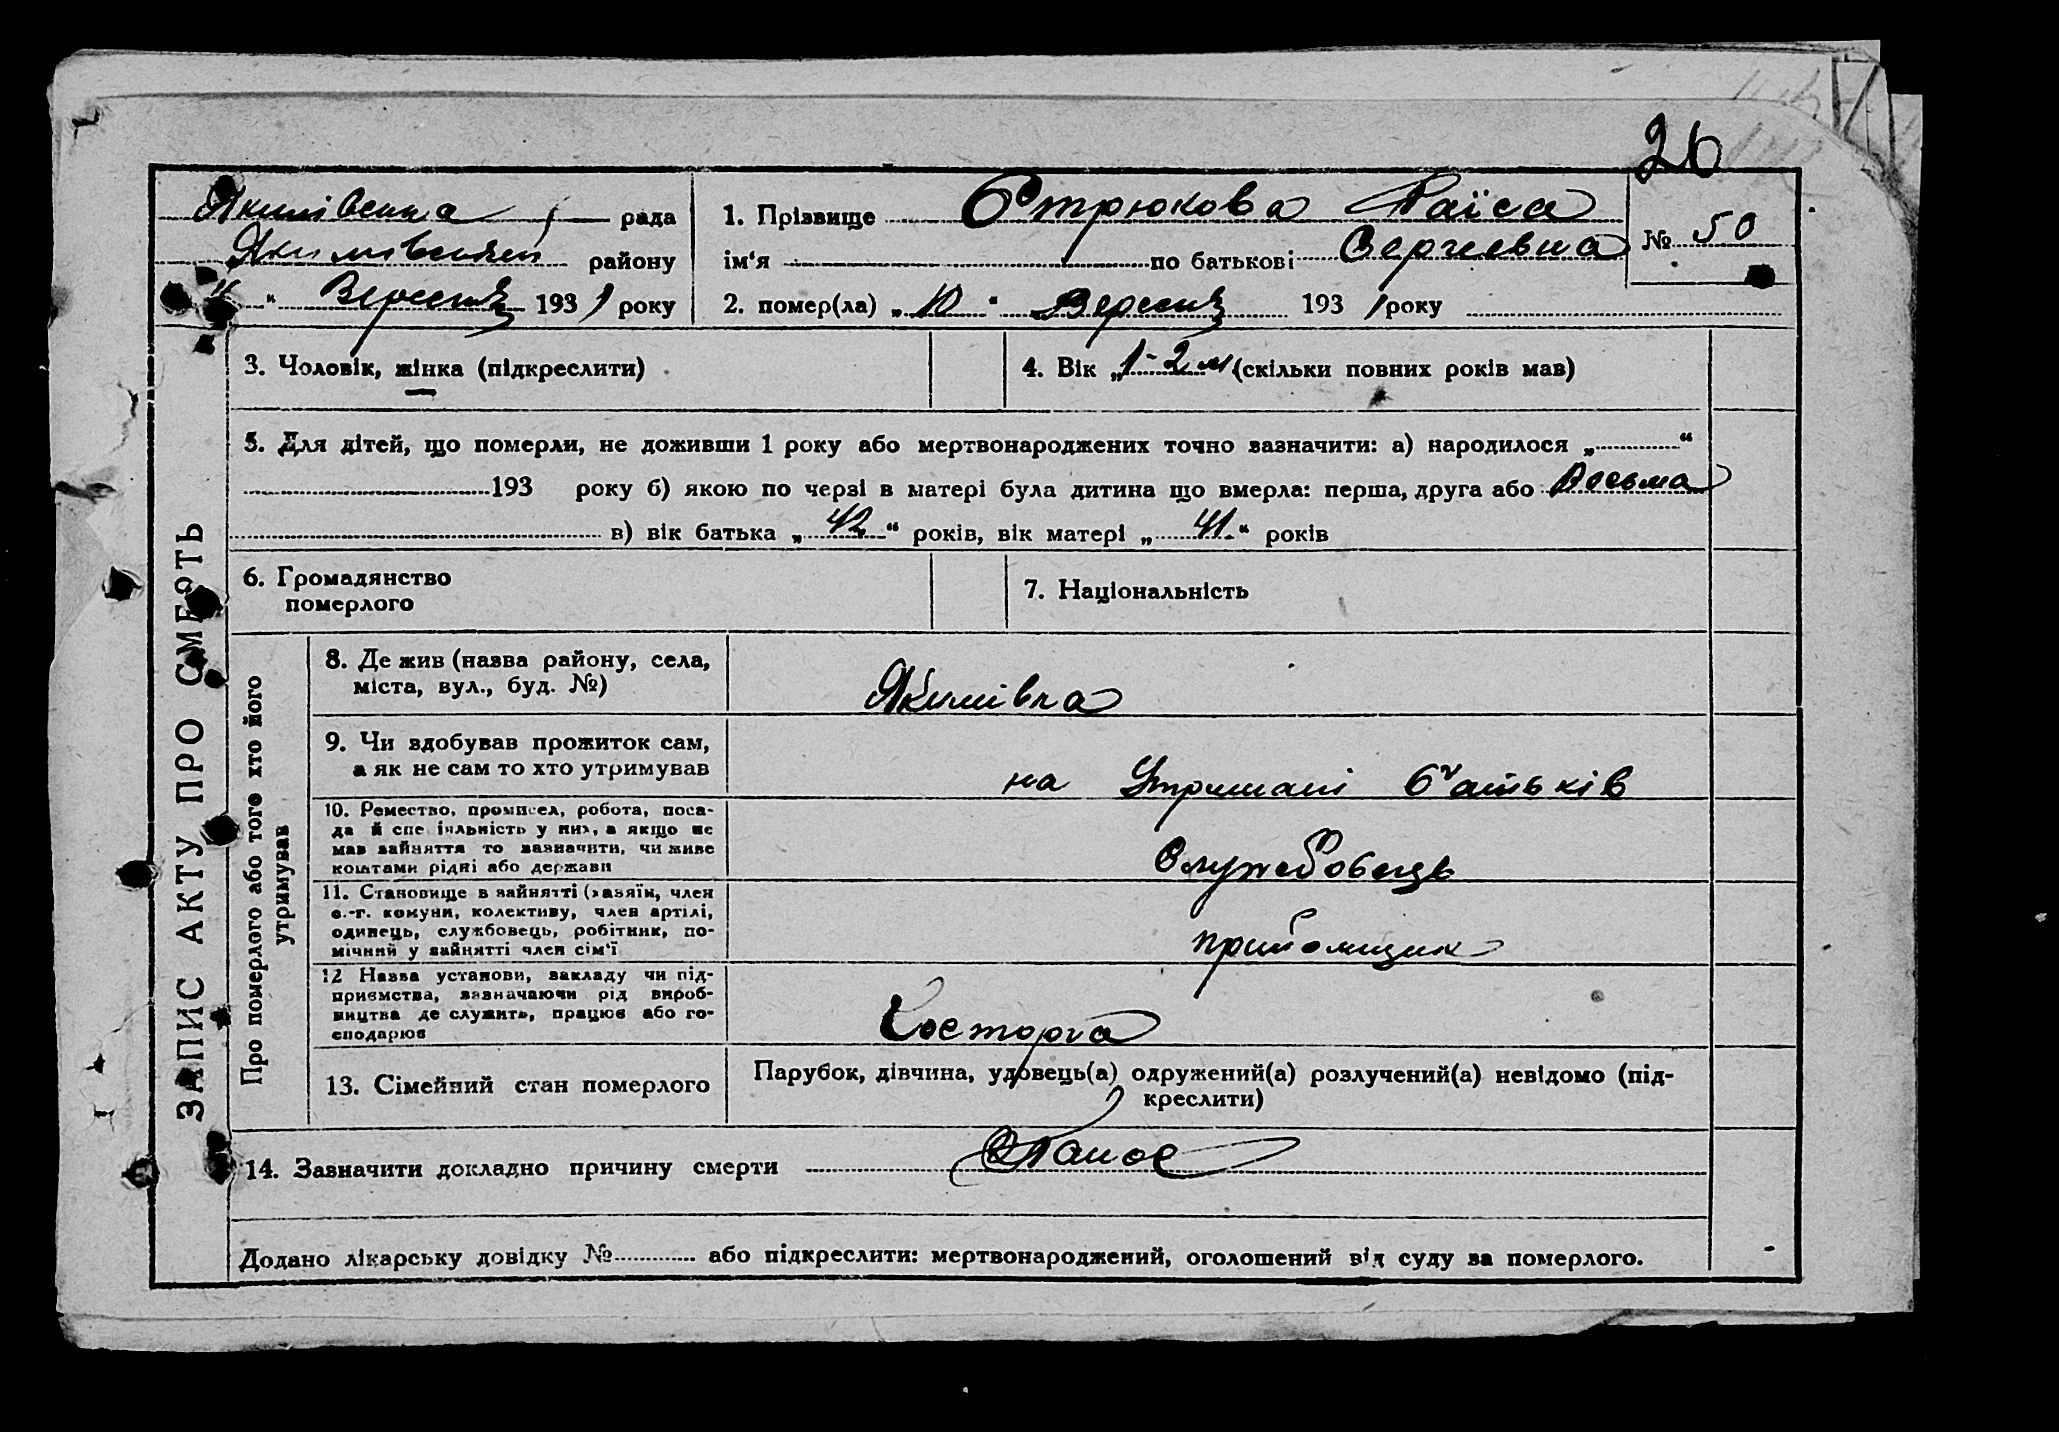 26
Якимівська рада
Якимівський району
" Вересня 1931 року
1. Прізвище Острюкова Раїса
ім'я по батькові Сергіевна
№ 50
2. помер(ла) „10" Вересня 1931 року
3. Чоловік, жінка (підкреслити)
4. Вік „1-2 м (скільки повних років мав)
5. Для дітей, що померли, не доживши 1 року або мертвонароджених точно зазначити: а) народилося „ “
193 року б) якою по черзі в матері була дитина що вмерла: перша, друга або Восьма
в) вік батька „42“ років, вік матері „41“ років
6. Громадянство
померлого
7. Національність
ЗАПИС АКТУ ПРО СМЕРТЬ
Про померлого або того хто його
утримував
8. Де жив (назва району, села,
міста, вул., буд. №)
Якимівка
9. Чи здобував прожиток сам,
а як не сам то хто утримував
на Утримані батьків
10. Ремество, промисел, робота, поса-
да й спеціяльність у них, а якщо не
мав зайняття то зазначити, чи живе
коштами рідні або держави
Служебовець
11. Становище в зайнятті (хазяїн, член
с.-г. комуни, колективу, член артілі,
одинець, службовець, робітник, по-
мічний у зайнятті член сім'ї
прийомщик
12 Назва установи, закладу чи під-
приємства, зазначаючи рід вироб-
ництва де служить, працює або го-
сподарює
Госторга
13. Сімейний стан померлого
Парубок, дівчина, удовець(а) одружений(а) розлучений(а) невідомо (під-
креслити)
14. Зазначити докладно причину смерти
Додано лікарську довідку № або підкреслити: мертвонароджений, оголошений від суду за померлого.